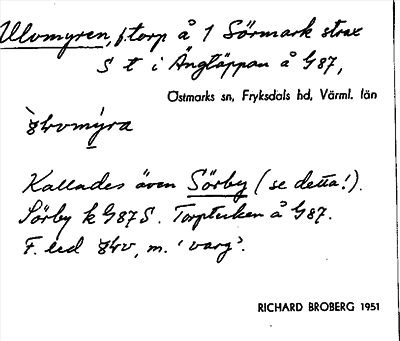 Ulvmyren, f. torp å 1 Sörmark strax
S t i Ängtäppan å G87,
Östmarks sn, Fryksdals hd, Värml. län
Kallades även Sörby (se detta!).
Sörby k G87 S. Torptecken å G87.
F. led, m. 'varg'.
RICHARD BROBERG 1951